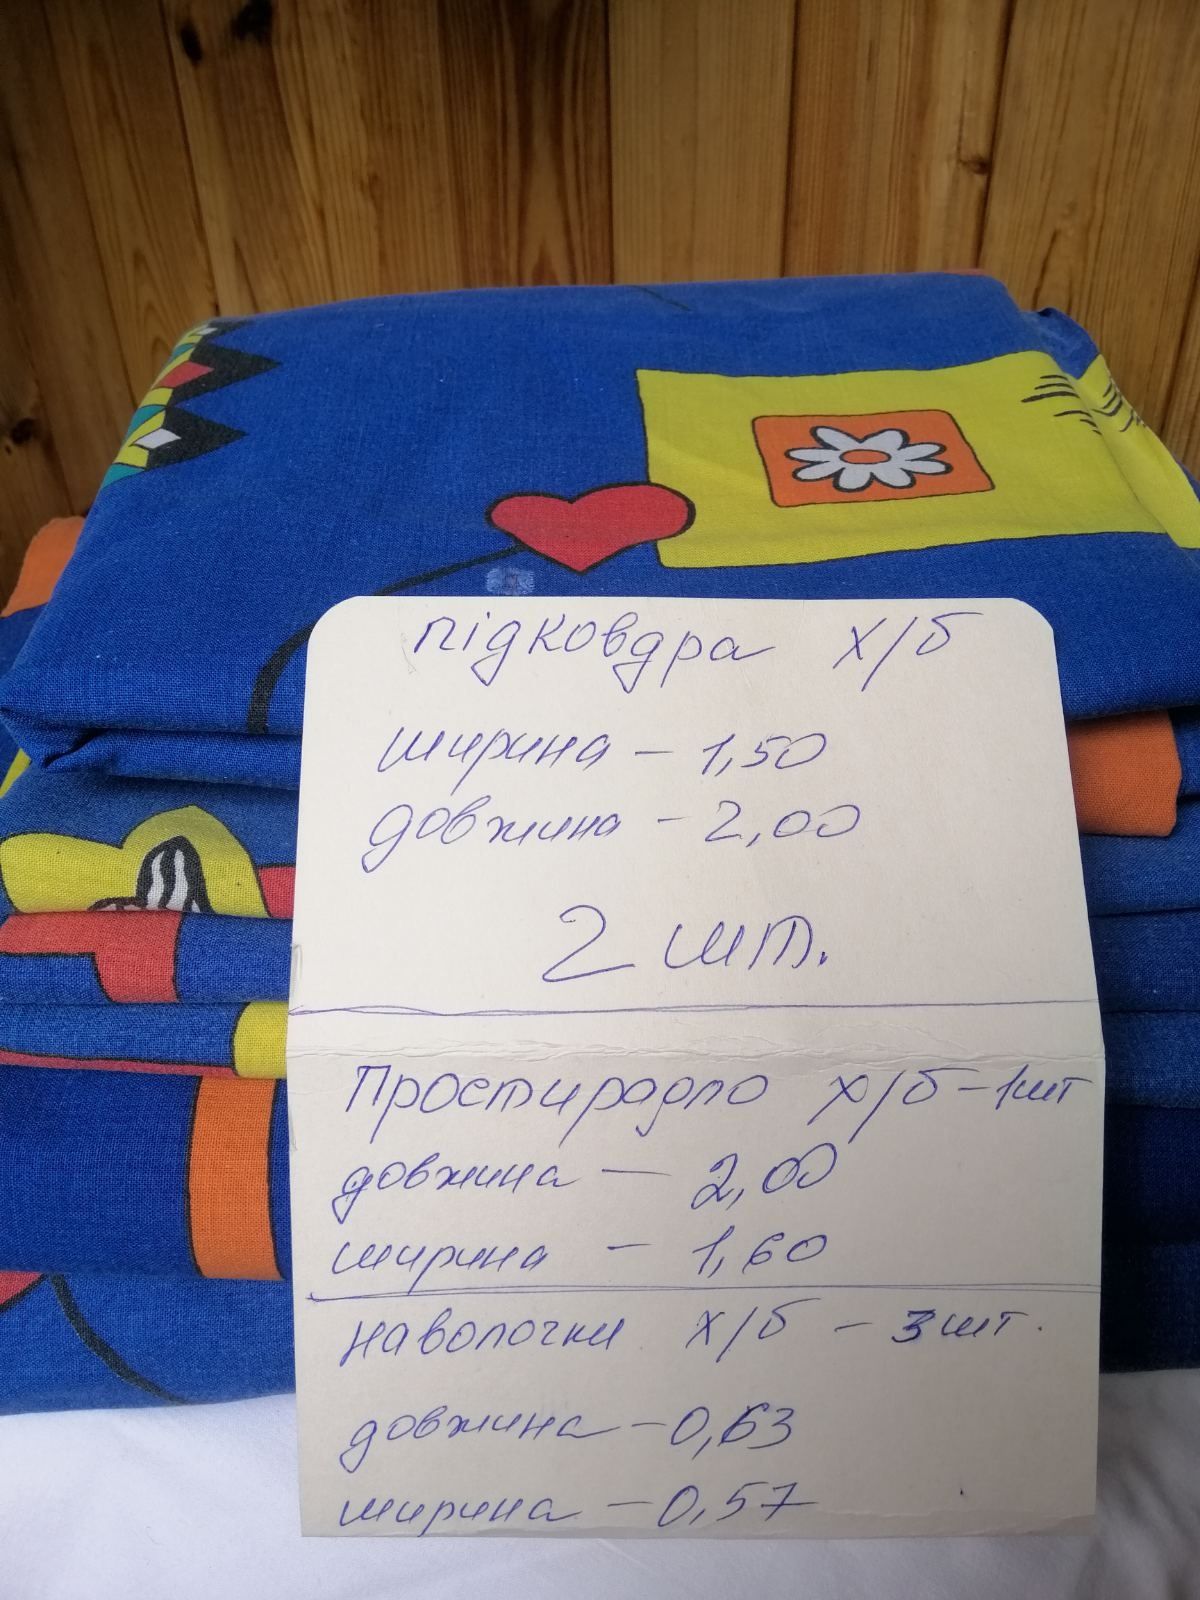 підковдра х/б
ширина - 1,50
довжина - 2,00
2 шт.
Простирадло х/б - 1шт
довжина - 2,00
ширина - 1,60
наволочки х/б - 3 шт.
довжина - 0,63
ширина - 0,57